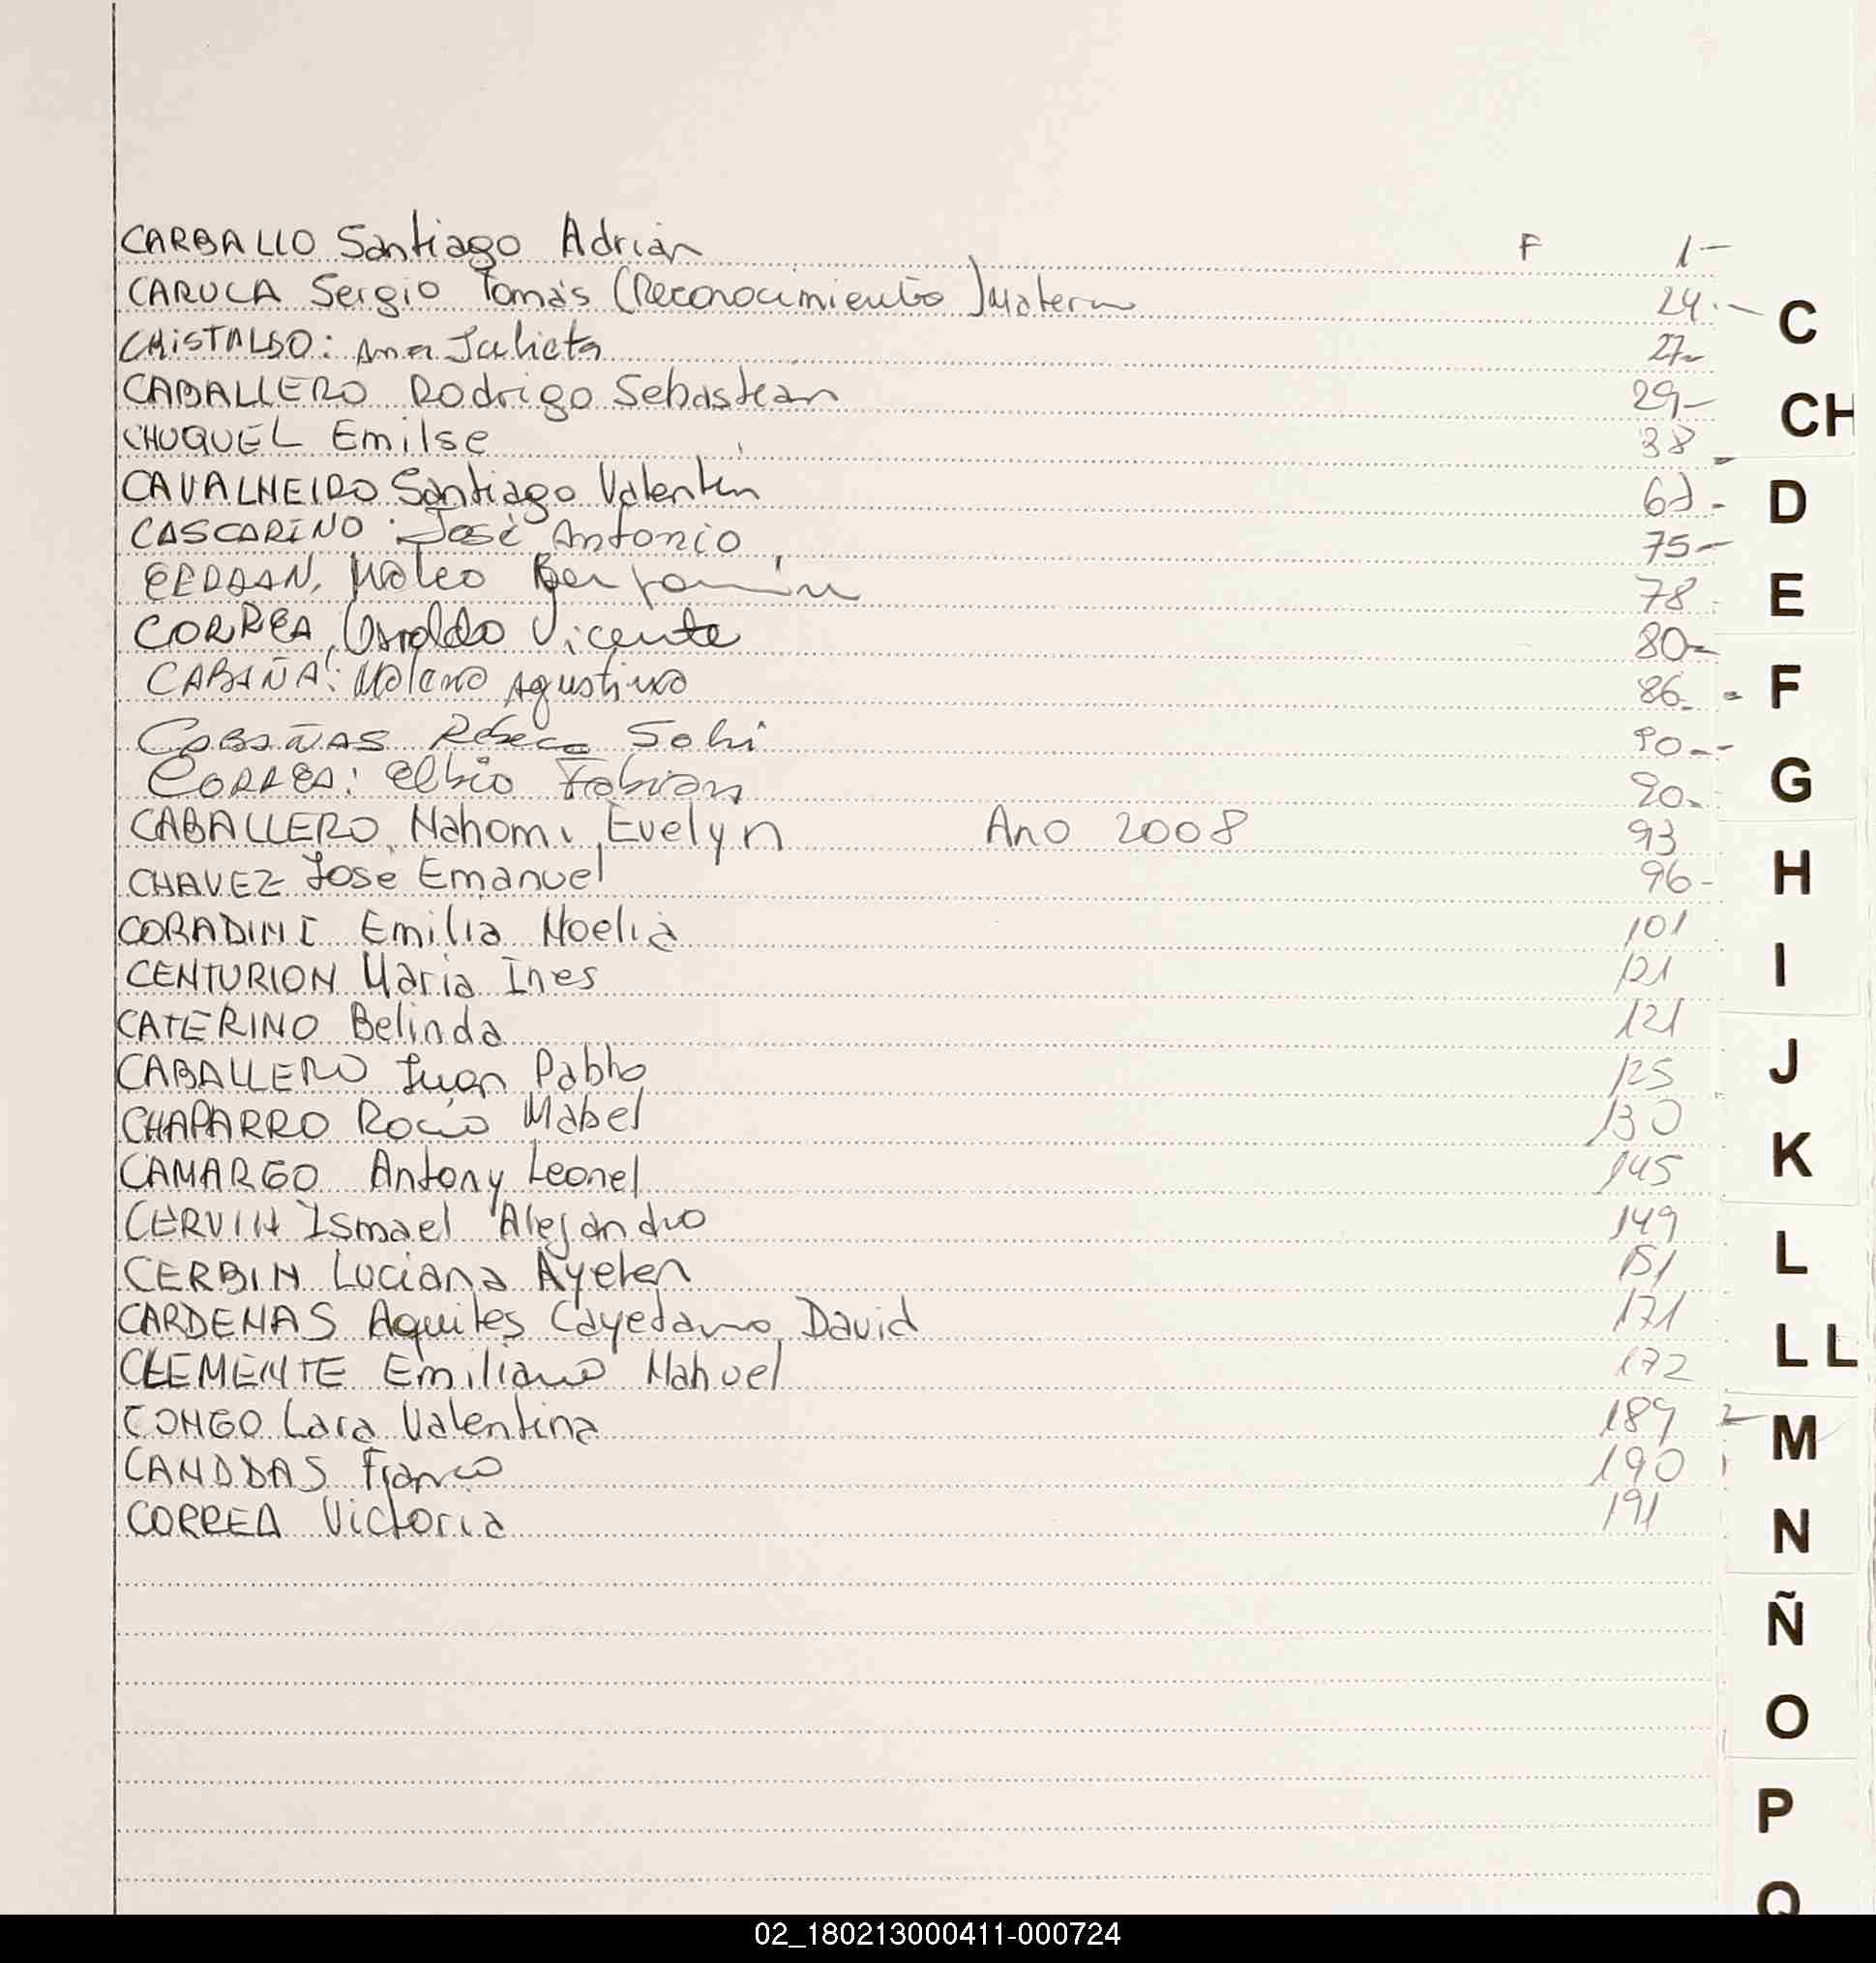 CARBALLO Santiago Adrian F 1-
CARUCA Sergio Tomás (Reconocimiento) Matern 24.-
CRISTALDO: Ana Julieta 27-
CABALLERO Rodrigo Sebastian 29-
CHUQUEL Emilse 38-
CAVALHEIRO Santiago Valentin -
CASCARINO. José Antonio 75-
Mateo Benjamín 78-
CORREA, Osvaldo Vicente 80-
CABAÑA: Agustina 86.-
CABAÑAS Rebeca 90.--
CORREA: Elbio Fabian 90.-
CABALLERO, Nahomi Evelyn Ano 2008 93
CHAVEZ José Emanuel 96-
CORADINI Emilia Noelia 101
CENTURION Maria Ines 121
CATERINO Belinda 121
CABALLERO Juan Pablo 125
CHAPARRO Rocío Mabel 130
CAMARGO Antony Leonel 145
CERVIN Ismael Alejandro 149
CERBIN Luciana Ayelen 151
CARDENAS Aquiles Cayetano David 171
CLEMENTE Emiliano Nahuel 172
CONGO Lara Valentina 189
CANDDAS Franco 190
CORREA Victoria 191
C
CH
D
E
F
G
H
I
J
K
L
LL
M
N
Ñ
O
P
Q
02_180213000411-000724